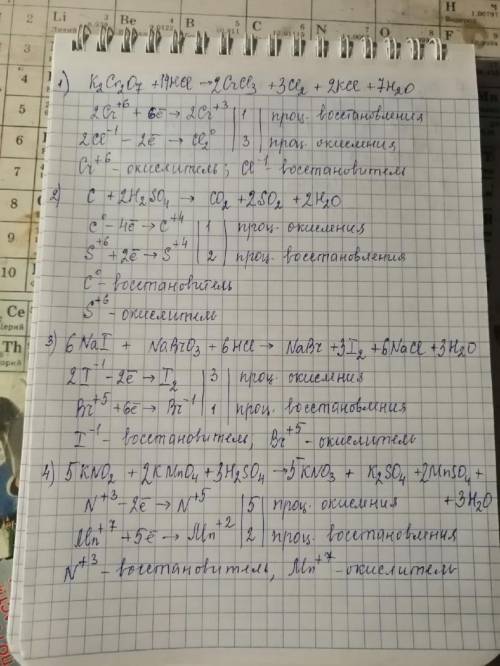 Li
Be
B
C
N
H
3
4
5
6
7
8
9
10
Ce
Th
1) K₂Cr₂O₇ + 14HCl → 2CrCl₃ + 3Cl₂ + 2KCl + 7H₂O
2Cr⁺⁶ + 6ē → 2Cr⁺³ | 1 | проц. восстановления
2Cl⁻¹ - 2ē → Cl₂⁰ | 3 | проц. окисления
Cr⁺⁶ - окислитель; Cl⁻¹ - восстановитель
2) C + 2H₂SO₄ → CO₂ + 2SO₂ + 2H₂O
C⁰ - 4ē → C⁺⁴ | 1 | проц. окисления
S⁺⁶ + 2ē → S⁺⁴ | 2 | проц. восстановления
C⁰ - восстановитель
S⁺⁶ - окислитель
3) 6NaI + NaBrO₃ + 6HCl → NaBr + 3I₂ + 6NaCl + 3H₂O
2I⁻¹ - 2ē → I₂ | 3 | проц. окисления
Br⁺⁵ + 6ē → Br⁻¹ | 1 | проц. восстановления
I⁻¹ - восстановитель, Br⁺⁵ - окислитель
4) 5KNO₂ + 2KMnO₄ + 3H₂SO₄ → 5KNO₃ + K₂SO₄ + 2MnSO₄ +
+ 3H₂O
N⁺³ - 2ē → N⁺⁵ | 5 | проц. окисления
Mn⁺⁷ + 5ē → Mn⁺² | 2 | проц. восстановления
N⁺³ - восстановитель, Mn⁺⁷ - окислитель